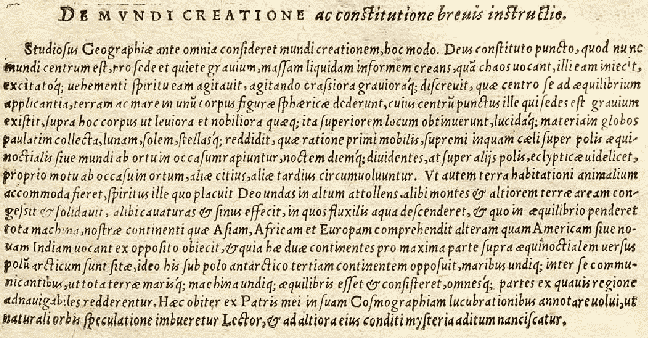 DE MVNDI CREATIONE ac constitutione breuis instructio.
Studiosus Geographiæ ante omnia consideret mundi creationem, hoc modo. Deus constituto puncto, quod nunc
mundi centrum est, pro sede et quiete grauium, massam liquidam informem creans, quã chaos uocant, illi eam iniecit,
excitatoq; uehementi spiritu eam agitauit, agitando crassiora grauioraq; discreuit, quæ centro se ad æquilibrium
applicantia, terram ac mare in unũ corpus figuræ sphæricæ dederunt, cuius centrũ punctus ille qui sedes est grauium
existit, supra hoc corpus ut leuiora et nobiliora quæq; ita superiorem locum obtinuerunt, lucidaq; materia in globos
paulatim collecta, lunam, solem, stellasq; reddidit, quæ ratione primi mobilis, supremi inquam cæli super polis æqui-
noctialis siue mundi ab ortu in occasum rapiuntur, noctem diemq; diuidentes, at super alijs polis, eclypticæ uidelicet,
proprio motu ab occasu in ortum, aliæ citius, aliæ tardius circumuoluuntur. Vt autem terra habitationi animalium
accommoda fieret, spiritus ille quo placuit Deo undas in altum attollens, alibi montes & altiorem terræ aream con-
gessit & solidauit, alibi cauaturas & sinus effecit, in quos fluxilis aqua descenderet, & quo in æquilibrio penderet
tota machina, nostræ continenti quæ Asiam, Africam et Europam comprehendit alteram quam Americam siue no-
uam Indiam uocant ex opposito obiecit, & quia hæ duæ continentes pro maxima parte supra æquinoctialem uersus
polũ arcticum sunt sitæ, ideo his sub polo antarctico tertiam continentem opposuit, maribus undiq; inter se commu-
nicantibus, ut tota terræ marisq; machina undiq; æquilibris esset & consisteret, omnesq; partes ex quauis regione
adnauigabiles redderentur. Hæc obiter ex Patris mei in suam Cosmographiam lucubrationibus annotare uolui, ut
naturali orbis speculatione imbueretur Lector, & ad altiora eius conditi mysteria aditum nanciscatur.